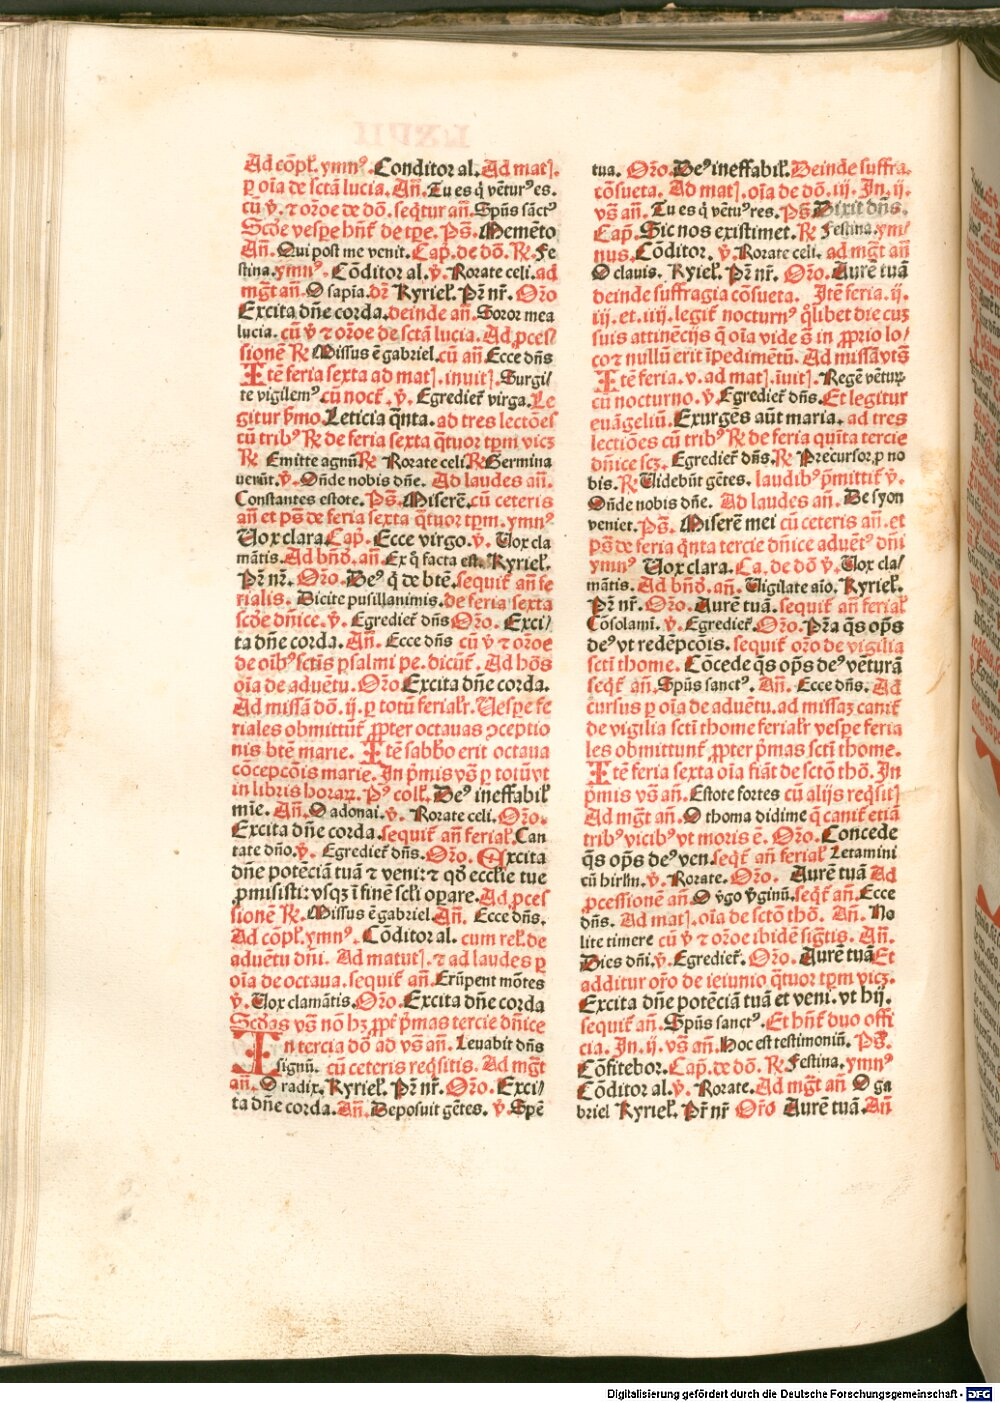 Ad cōpł. ymnꝰ. Conditor al. Ad mat].
ꝑ oīa de sctā lucia. Añ. Tu es q̇ vētur⁹ es.
cū ꝟ. ⁊ oroe de dō. seq̄tur añ. Spūs sāct⁹
Scd̄e vespe hn̄t̄ de tpe. Ps̄. Memēto
Añ. Qui post me venit. Cap̄. de dō. ℞. Fe
stina. ymn⁹. Cōditor al. ꝟ. Rorate celi. ad
mḡt añ. O sapīa. dr̄ Kyrieł. Pr̄ nr̄. Or̄o
Excita dñe corda. deinde añ. Soror mea
lucia. cū ꝟ ⁊ oroe de sctā lucia. Ad ꝓcess
sionē ℞ Missus ē gabriel. cū añ Ecce dn̄s
Itē feria sexta ad mat]. inuit]. Surgi⸗
te vigilem⁹ cū noct̄. ꝟ. Egrediet̄ virga. Le
gitur p̄mo. Leticia q̄nta. ad tres lectōes
cū trib⁹ ℞ de feria sexta q̄tuor tp̄m vicꝫ
℞ Emitte agnū ℞ Rorate celi. ℞ Germina
uerūt. ꝟ. Oñde nobis dñe. Ad laudes añ.
Constantes estote. Ps̄. Miserē. cū ceteris
añ et ps̄ de feria sexta q̄tuor tp̄m. ymn⁹
Uox clara. Cap̄. Ecce virgo. ꝟ. Uox cla
mātis. Ad bn̄d̄. añ. Ex q̇ facta est. Kyrieł.
Pr̄ nr̄. Or̄o. De⁹ q̇ de btē. sequit̄ añ fe
rialis. Dicite pusillanimis. de feria sexta
scd̄e dñice. ꝟ. Egrediet̄ dn̄s Or̄o. Exci⸗
ta dñe corda. Añ. Ecce dn̄s cū ꝟ ⁊ oroe
de oīb⁹ sctīs ꝑsalmi pe. dicūt̄. Ad hōs
oīa de aduētu. Or̄o Excita dñe corda.
Ad missā dō. ij. ꝑ totū ferialr̄. Uespe fe
riales obmittūt̄ ꝓpter octauas ꝯceptio
nis btē marie. Itē sabb̄o erit octaua
cōcepcōis marie. In p̄mis vs̄ ꝑ totū vt
in libris horaꝝ. P⁹ coll̄. De⁹ ineffabił
mīe. Añ. O adonai. ꝟ. Rorate celi. Or̄o.
Excita dñe corda. sequit̄ añ feriał. Can
tate dño. ꝟ. Egrediet̄ dn̄s. Or̄o. Excita
dñe potēciā tuā ⁊ veni: ⁊ qđ ecclie tue
ꝓmisisti: vsqꝫ ī finē scl̄i oꝑare. Ad ꝓces
sionē ℞. Missus ē gabriel. Añ. Ecce dn̄s.
Ad cōpł. ymn⁹. Cōditor al. cum reł. de
aduētu dñi. Ad matut]. ⁊ ad laudes ꝑ
oīa de octaua. sequit̄ añ. Erūpent mōtes
ꝟ. Uox clamātis. Or̄o. Excita dñe corda
Scd̄as vs̄ nō hꝫ ꝓpt̄ p̄mas tercie dñice
In tercia dō ad vs̄ añ. Leuabit dn̄s
signū. cū ceteris req̄sitis. Ad mḡt
añ. O radix. Kyrieł. Pr̄ nr̄. Or̄o. Exci⸗
ta dñe corda. Añ. Deposuit gētes. ꝟ. Spē
tua. Or̄o. De⁹ ineffabił. Deinde suffra⸗
cōsueta. Ad mat]. oīa de dō. iij. In. ij.
vs̄ añ. Tu es q̇ vētu⁹res. Ps̄. Dixit dn̄s.
Cap̄. Sic nos existimet. ℞ Festina. ym⸗
nus. Cōditor. ꝟ. Rorate celi. ad mḡt añ
O clauis. Kyieł. Pr̄ nr̄. Or̄o. Aurē tuā
deinde suffragia cōsueta. Itē feria. ij.
iij. et. iiij. legit̄ nocturn⁹ q̄libet die cuꝫ
suis attinēcijs q̄ oīa vide s̄ in ꝓprio lo⸗
co ⁊ nullū erit īpedimētū. Ad missā vts̄
Itē feria. v. ad mat]. īuit]. Regē vētuꝝ
cū nocturno. ꝟ. Egrediet̄ dn̄s. Et legitur
euāgeliū. Exurgēs aūt maria. ad tres
lectiōes cū trib⁹ ℞ de feria quīta tercie
dñice scꝫ. Egrediet̄ dn̄s. ℞ Precursor. ꝑ no
bis. ℞. Uidebūt gētes. laudib⁹ p̄mittit̄ ꝟ.
Oñde nobis dñe. Ad laudes añ. De syon
veniet. Ps̄. Miserē mei cū ceteris añ. et
ps̄ de feria q̄nta tercie dñice aduēt⁹ dñi
ymn⁹ Uox clara. Ca. de dō ꝟ. Uox cla⸗
mātis. Ad bn̄d̄. añ. Uigilate aīo. Kyrieł.
Pr̄ nr̄. Or̄o. Aurē tuā. sequit̄ añ feriał
Cōsolamī. ꝟ. Egrediet̄. Or̄o. Pr̄a q̄s op̄s
de⁹ vt redēpcōis. sequit̄ or̄o de vigilia
sctī thome. Cōcede q̄s op̄s de⁹ vēturā
seq̄t̄ añ. Spūs sanct⁹. Añ. Ecce dn̄s. Ad
cursus ꝑ oīa de aduētu. ad missaꝫ canit̄
de vigilia sctī thome ferialr̄ vespe feria
les obmittunt̄ ꝓpter p̄mas sctī thome.
Itē feria sexta oīa fiāt de sctō thō. In
p̄mis vs̄ añ. Estote fortes cū alijs req̄sit]
Ad mḡt añ. O thoma didime q̄ canit̄ etiā
trib⁹ vicib⁹ vt moris ē. Or̄o. Concede
q̄s op̄s de⁹ ven. seq̄t̄ añ feriał Letamini
cū hirlm̄. ꝟ. Rorate. Or̄o. Aurē tuā Ad
ꝓcessionē añ. O v̇go v̇ginū. seq̄t̄ añ. Ecce
dn̄s. Ad mat]. oīa de sctō thō. Añ. No
lite timere cū ꝟ ⁊ oroe ibidē sig̅tis. Añ.
Dies dñi. ꝟ. Egrediet̄. Or̄o. Aurē tuā Et
additur or̄o de ieiunio q̄tuor tp̄m vicꝫ.
Excita dñe potēciā tuā et veni. vt hij.
sequit̄ añ. Spūs sanct⁹. Et hn̄t̄ duo offi
cia. In. ij. vs̄ añ. Hoc est testimoniū. Ps̄.
Cōfitebor. Cap̄. de dō. ℞. Festina. ymn⁹
Cōditor al. ꝟ. Rorate. Ad mḡt añ O ga
briel Kyrieł. Pr̄ nr̄ Or̄o Aurē tuā. Añ
Digitalisierung gefördert durch die Deutsche Forschungsgemeinschaft - DFG